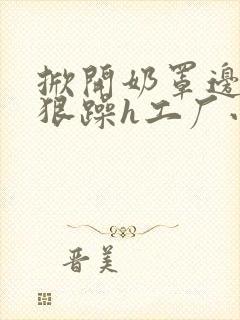 掀開奶罩邊
狠躁h工厂
晋美